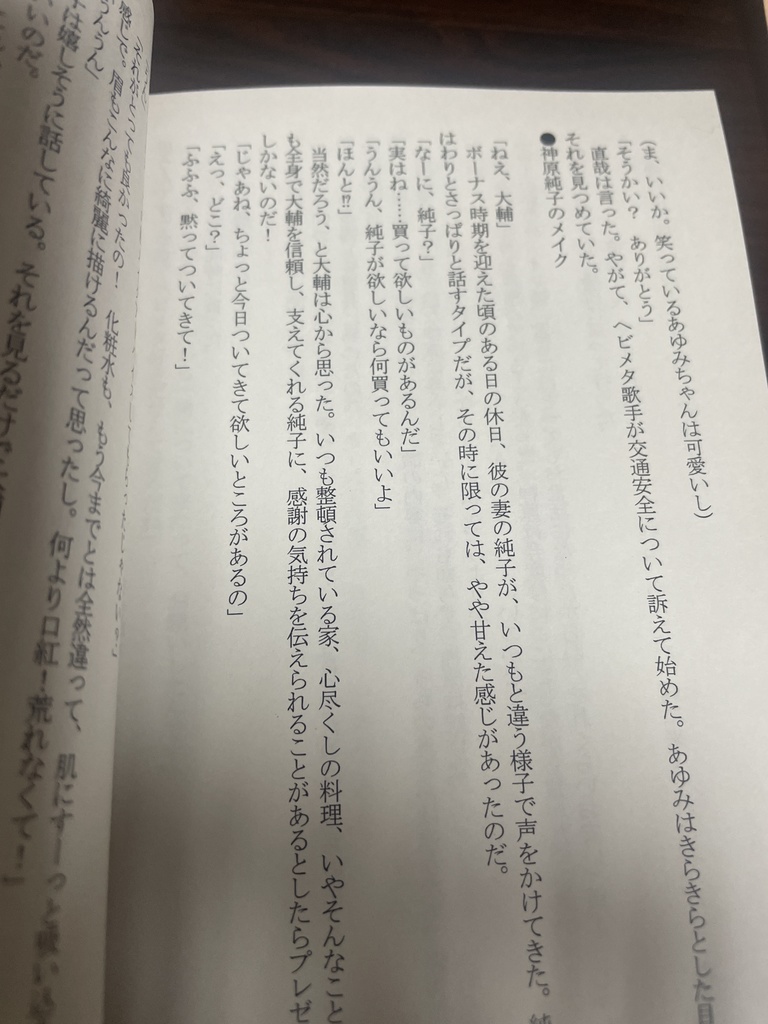 (ま、いいか。笑っているあゆみちゃんは可愛いし)
「そうかい? ありがとう」
直哉は言った。やがて、ヘビメタ歌手が交通安全について訴えて始めた。あゆみはきらきらとした目
それを見つめていた。
●神原純子のメイク
「ねえ、大輔」
ボーナス時期を迎えた頃のある日の休日、彼の妻の純子が、いつもと違う様子で声をかけてきた。純
はわりとさっぱりと話すタイプだが、その時に限っては、やや甘えた感じがあったのだ。
「なーに、純子?」
「実はね……買って欲しいものがあるんだ」
「うんうん、純子が欲しいなら何買ってもいいよ」
「ほんと!?」
当然だろう、と大輔は心から思った。いつも整頓されている家、心尽くしの料理、いやそんなこと
も全身で大輔を信頼し、支えてくれる純子に、感謝の気持ちを伝えられることがあるとしたらプレゼ
しかないのだ!
「じゃあね、ちょっと今日ついてきて欲しいところがあるの」
「えっ、どこ?」
「ふふふ、黙ってついてきて!」
化粧水も、もう今までとは全然違って、肌にすーっと吸い
感じで。眉もこんなに綺麗に描けるんだって思ったし。何より口紅!荒れなくて!」
うんうん」
は嬉しそうに話している。それを見るだけで
いのだ。